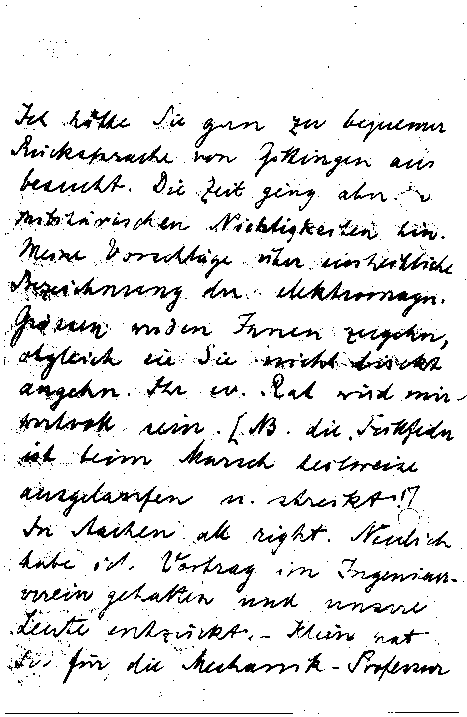 Ich hätte Sie gern zu bequemer
Rücksprache von Göttingen aus
besucht. Die Zeit ging aber in
militärischen Nichtigkeiten hin.
Meine Vorschläge über einheitliche
Bezeichnung der elektromagn.
Grössen werden Ihnen zugehn,
obgleich sie Sie nicht direkt
angehn. Ihr ev. Rat wird mir
wertvoll sein. [NB. die Füllfeder
ist beim Marsch teilweise
ausgelaufen u. streikt!]
In Aachen all right. Neulich
habe ich Vortrag im Ingenieur-
verein gehalten und unsere
Leute entzückt. - Klein hat
Sie für die Mechanik-Professur